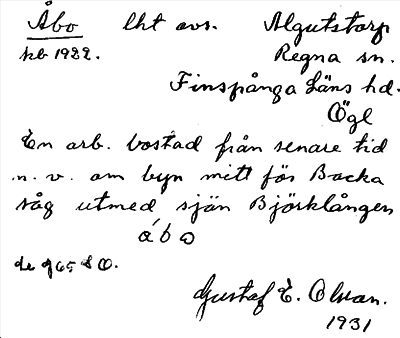 Åbo lht avs. Algutstorp
kb 1922. Regna sn.
Finspånga Läns hd.
Ögl
En arb. bostad från senare tid
n. v. om byn mitt för Backa
såg utmed sjön Björklången
å´bo
de g65 & O.
Gustaf E. Olsson.
1931